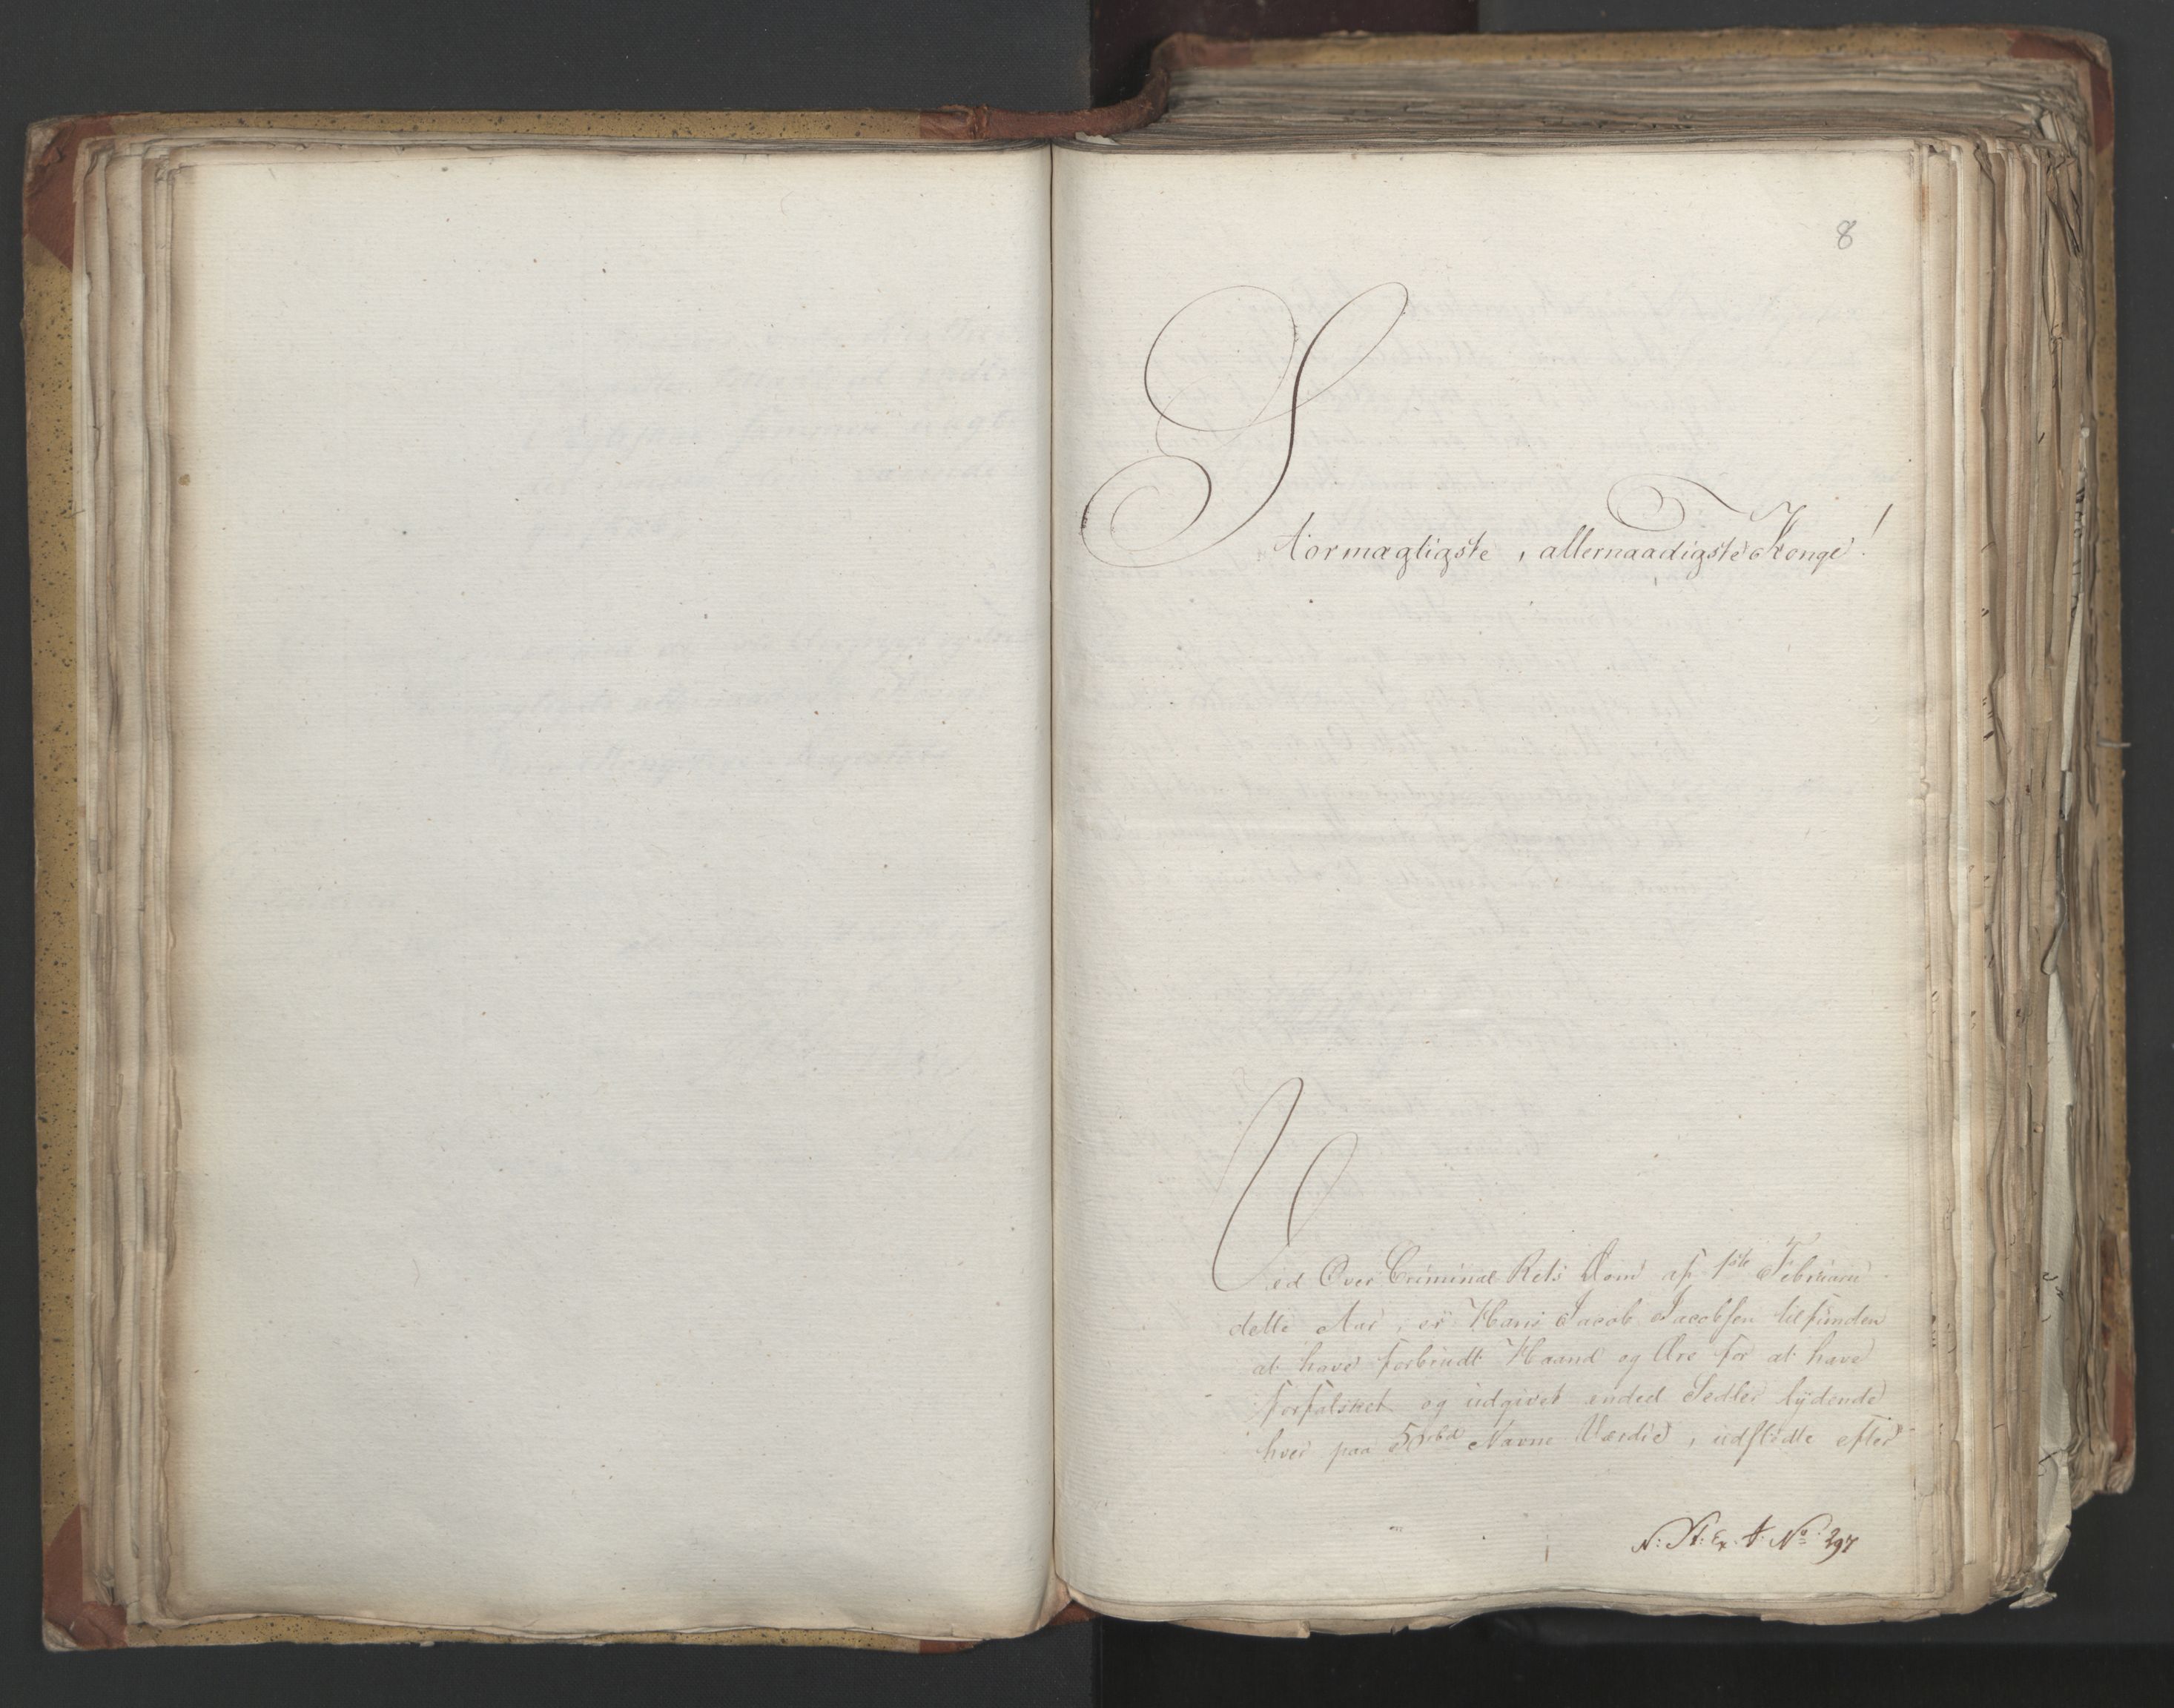 8
Stormægtigste, allernaadigste Konge!
Ved Over Criminal Rets Dom af 1ste Februari
dette Aar, er Hans Jacob Jacobsen tilfunden
at have forbrudt Haand og Ære for at have
forfalsket og udgivet endeel Sedler lydende
hver paa 50 rbd Navne Værdie, udstedte efter
N: St: Ex. A: No 297